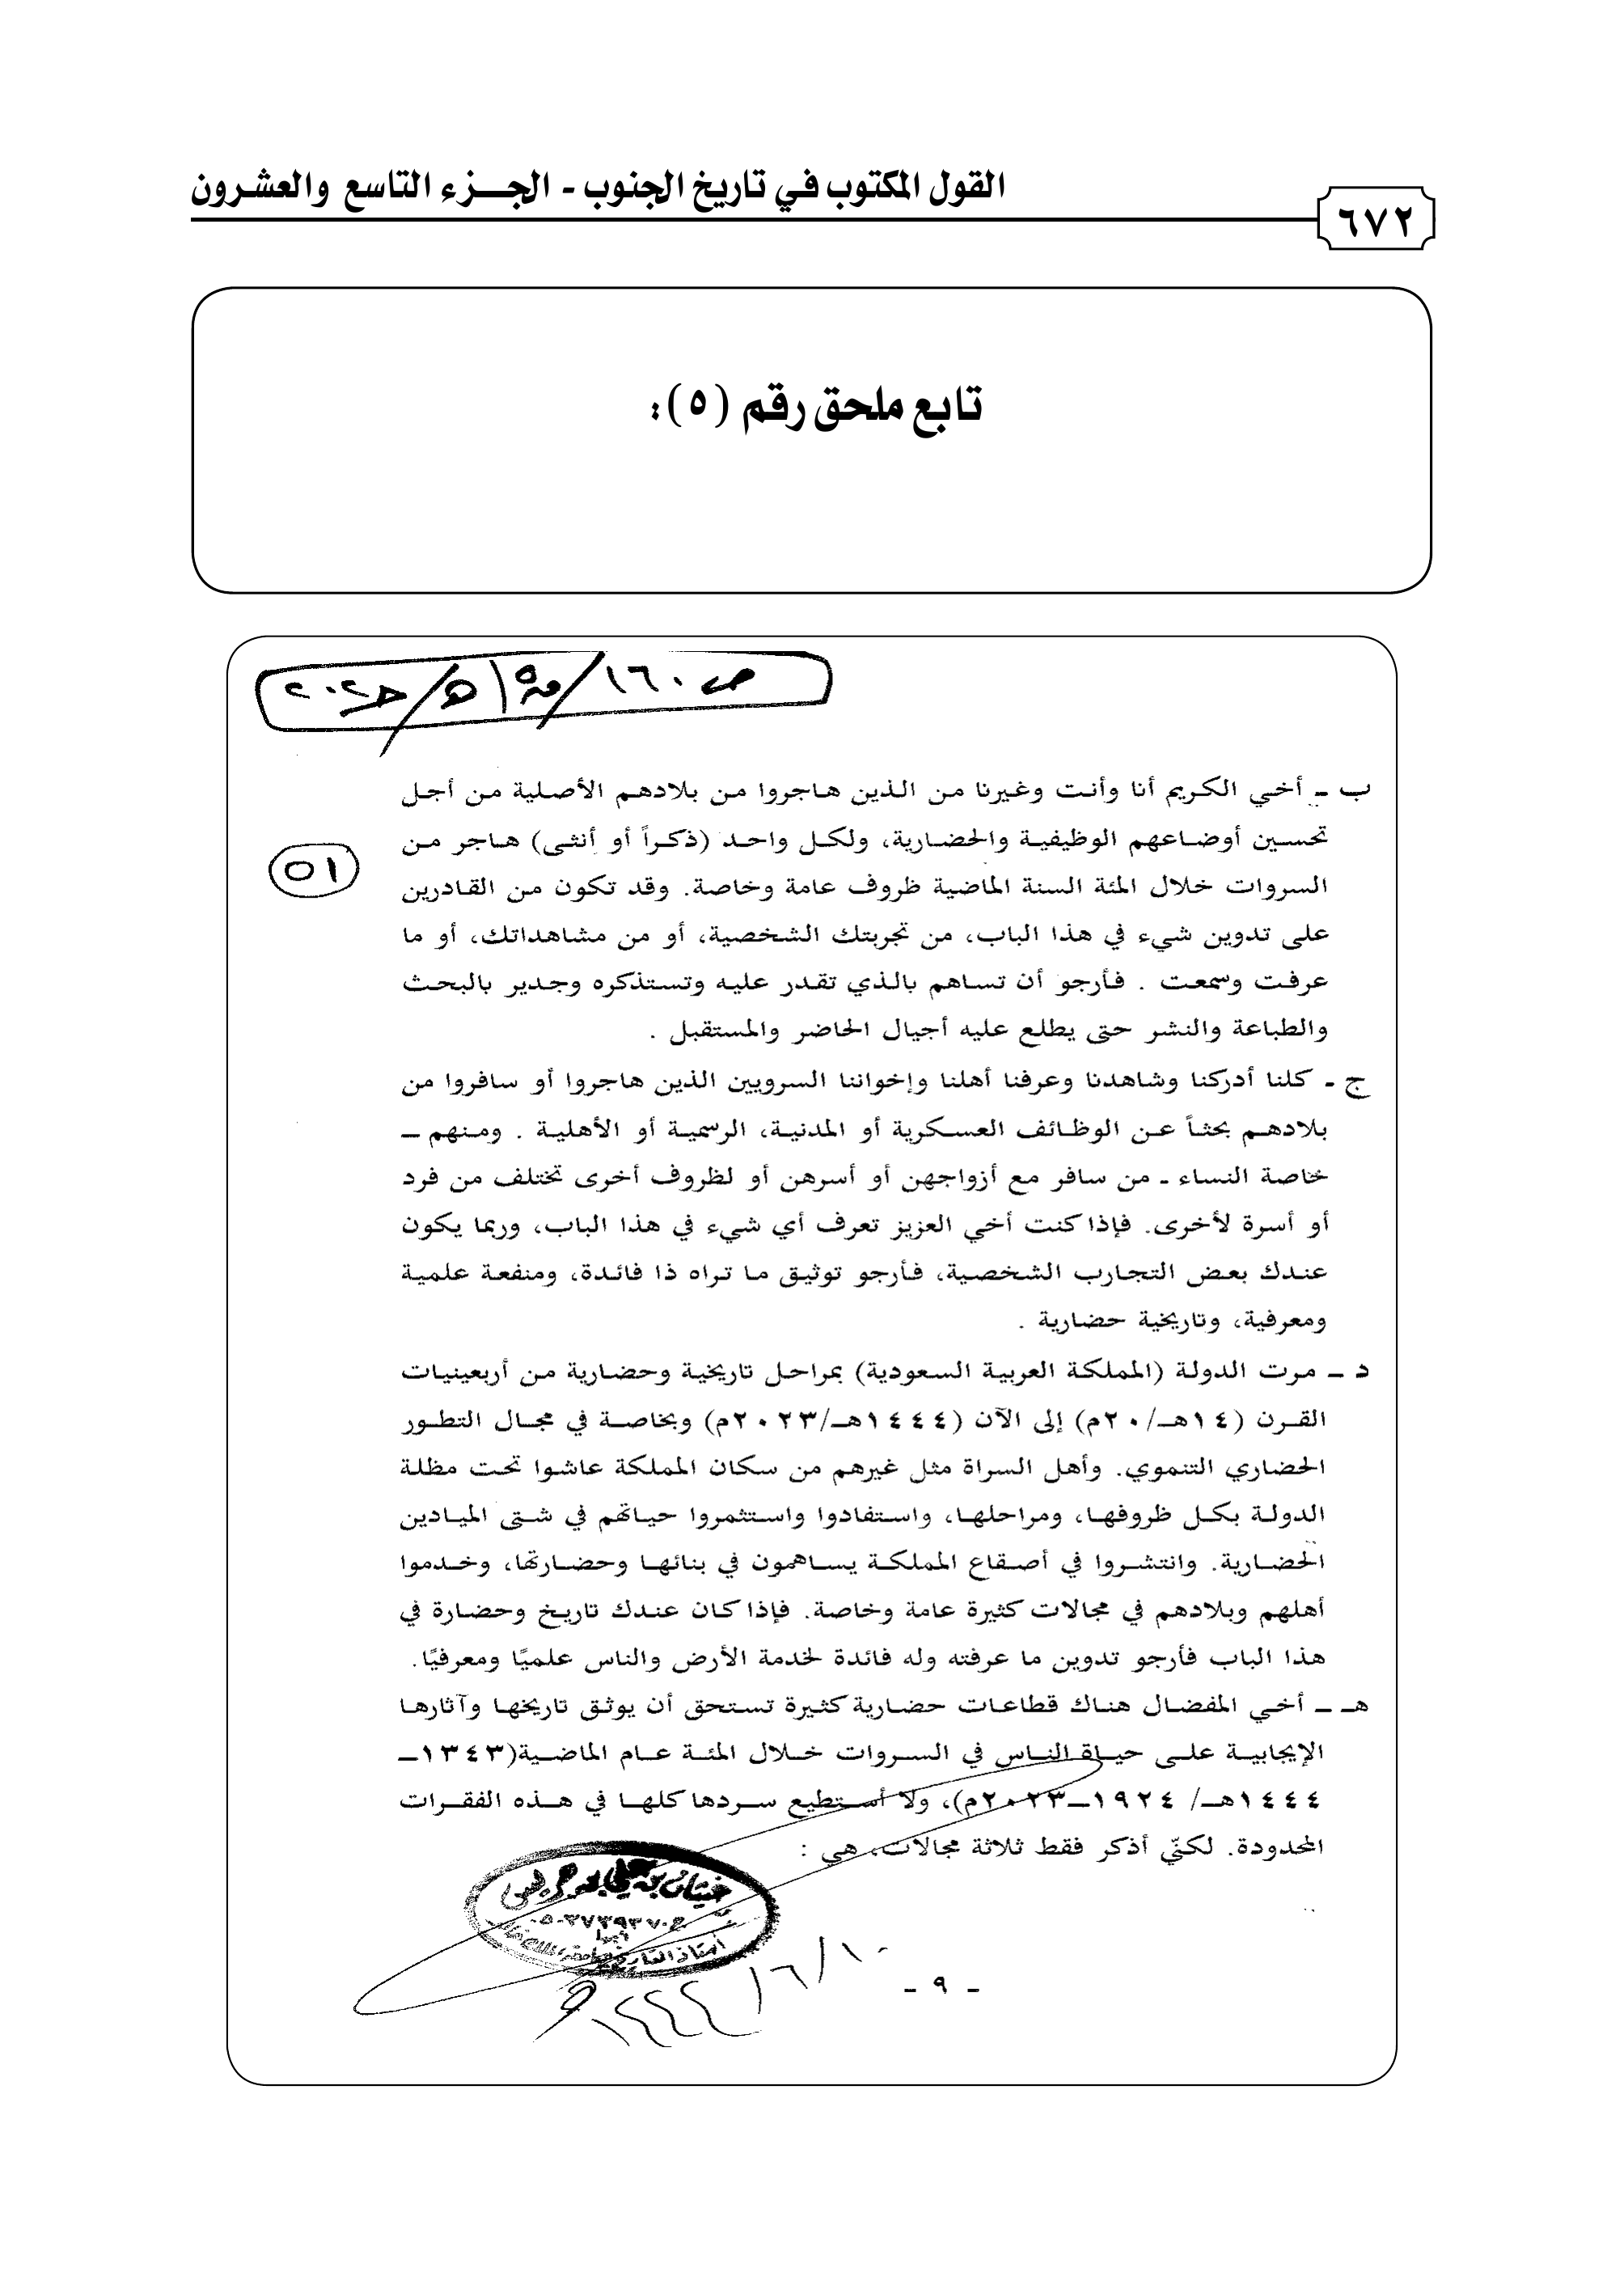 القول المكتوب في تاريخ الجنوب - الجـــزء التاسع والعشرون
٦٧٢
تابع ملحق رقم (٥):
ص١٦٠/
٥١
ب - أخي الكريم أنا وأنت وغيرنا من الذين هاجروا من بلادهم الأصلية من أجل
تحسين أوضاعهم الوظيفية والحضارية، ولكل واحد (ذكراً أو أنثى) هاجر من
السروات خلال المئة السنة الماضية ظروف عامة وخاصة. وقد تكون من القادرين
على تدوين شيء في هذا الباب، من تجربتك الشخصية، أو من مشاهداتك، أو ما
عرفت وسمعت . فأرجو أن تساهم بالذي تقدر عليه وتستذكره وجدير بالبحث
والطباعة والنشر حتى يطلع عليه أجيال الحاضر والمستقبل .
ج - كلنا أدركنا وشاهدنا وعرفنا أهلنا وإخواننا السرويين الذين هاجروا أو سافروا من
بلادهم بحثاً عن الوظائف العسكرية أو المدنية، الرسمية أو الأهلية . ومنهم –
خاصة النساء - من سافر مع أزواجهن أو أسرهن أو لظروف أخرى تختلف من فرد
أو أسرة لأخرى. فإذا كنت أخي العزيز تعرف أي شيء في هذا الباب، وربما يكون
عندك بعض التجارب الشخصية، فأرجو توثيق ما تراه ذا فائدة، ومنفعة علمية
ومعرفية، وتاريخية حضارية .
د – مرت الدولة (المملكة العربية السعودية) بمراحل تاريخية وحضارية من أربعينيات
القرن (١٤هـ/٢٠م) إلى الآن (١٤٤٤هـ/٢٠٢٣م) وبخاصة في مجال التطور
الحضاري التنموي. وأهل السراة مثل غيرهم من سكان المملكة عاشوا تحت مظلة
الدولة بكل ظروفها، ومراحلها، واستفادوا واستثمروا حياتهم في شتى الميادين
الحضارية. وانتشروا في أصقاع المملكة يساهمون في بنائها وحضارتها، وخدموا
أهلهم وبلادهم في مجالات كثيرة عامة وخاصة. فإذا كان عندك تاريخ وحضارة في
هذا الباب فأرجو تدوين ما عرفته وله فائدة لخدمة الأرض والناس علميًا ومعرفيًا.
هـ – أخي المفضال هناك قطاعات حضارية كثيرة تستحق أن يوثق تاريخها وآثارها
الإيجابية على حياة الناس في السروات خلال المئة عام الماضية(١٣٤٣–
١٤٤٤هـ/ ١٩٢٤–٢٠٢٣م)، ولا أستطيع سردها كلها في هذه الفقرات
المحدودة. لكنّي أذكر فقط ثلاثة مجالات، هي :
بن علي
أبها
أستاذ التاريخ
- ٩ -